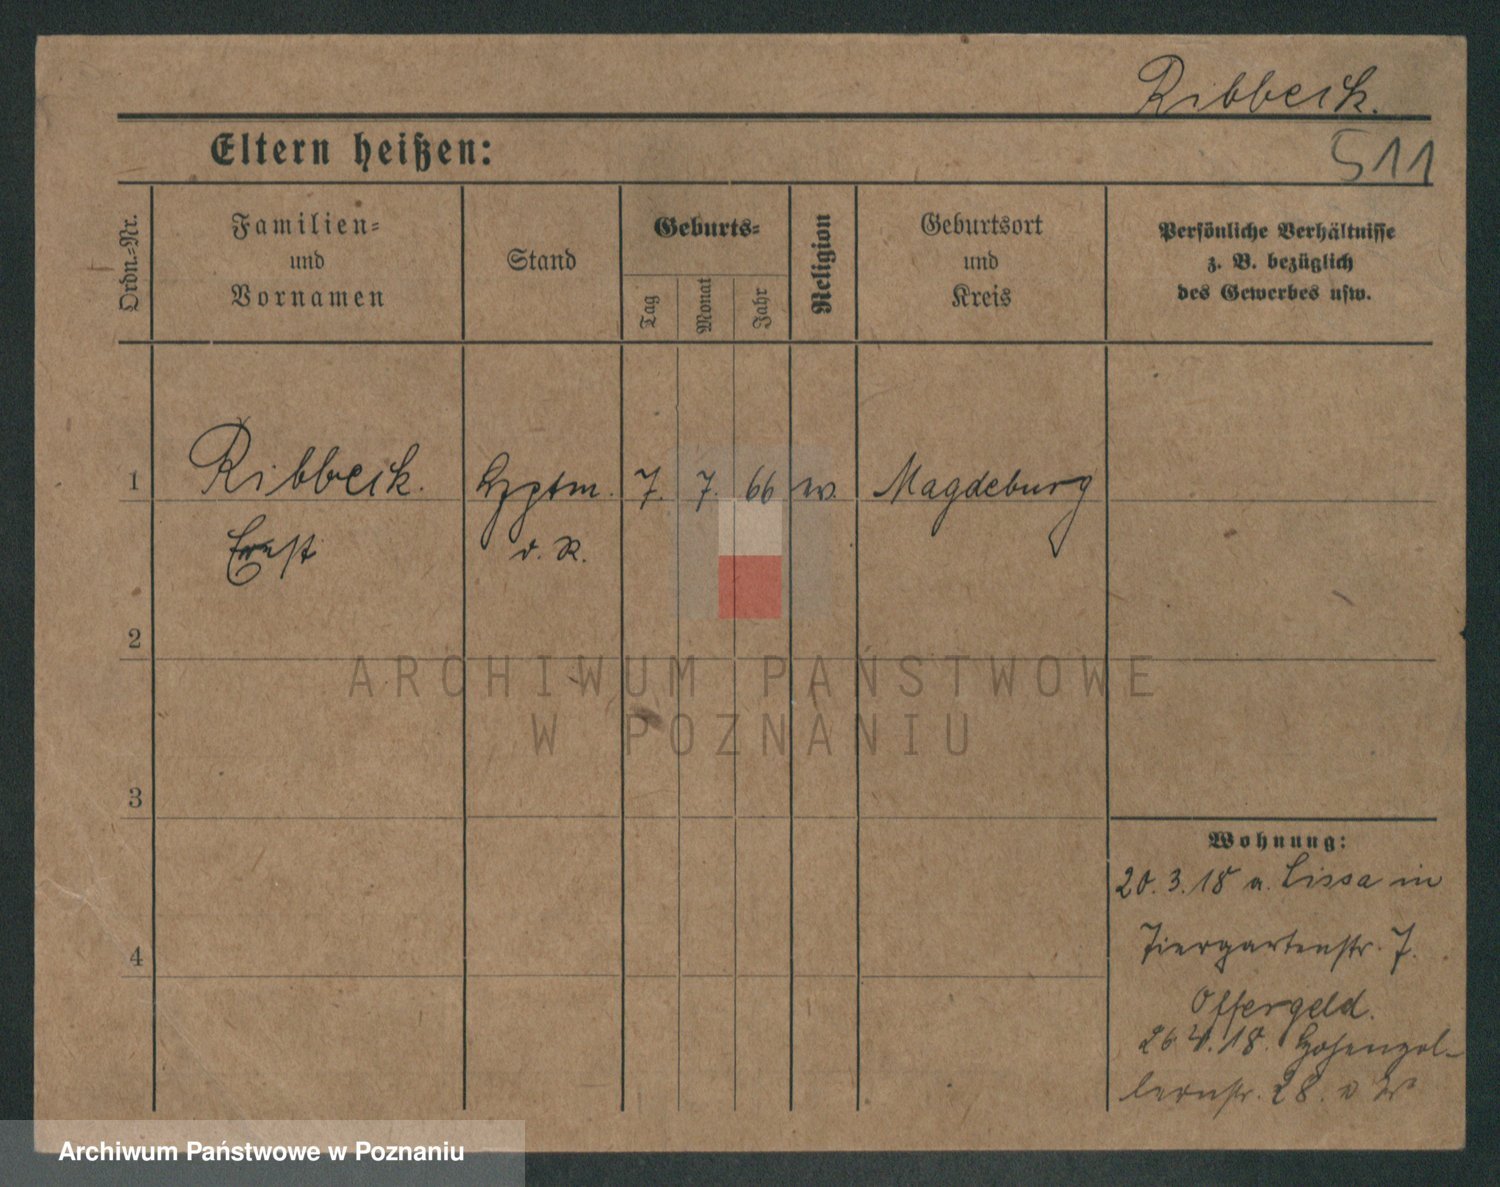 Ribbeck.
511
Eltern heißen:
Ordn.=Nr.
Familien=
und
Vornamen
Stand
Geburts=
Tag
Monat
Jahr
Religion
Geburtsort
und
Kreis
Persönliche Verhältnisse
z. B. bezüglich
des Gewerbes usw.
1 Ribbeck. Hptm. 7. 7. 66 ev. Magdeburg
Ernst d. R.
2
3
4
Wohnung:
20. 3. 18 a. Lissa in
Tiergartenstr. 7.
Offergeld.
26. 4. 18. Hohenzol-
lernstr. 28.
ARCHIWUM PAŃSTWOWE
W POZNANIU
Archiwum Państwowe w Poznaniu